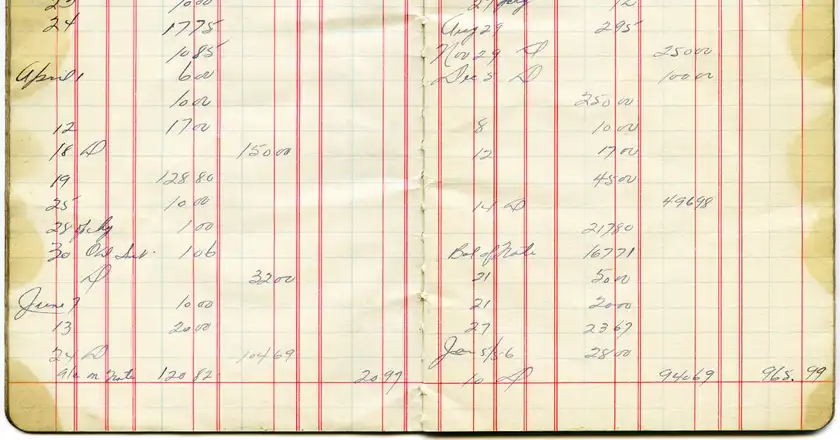 23 1000
24 1775
1085
April 1 600
1000
12 1700
18 D 15000
19 12880
25 1000
28 100
30 106
D 3200
June 7 1000
13 2000
24 D 10469
on Note 12082 2097
27 12
Aug 29 295
Nov 29 D 25000
Dec 5 D 10000
25000
8 1000
12 1700
4500
14 D 49698
21780
Bal of Note 16771
21 5000
21 2000
27 2367
Jan 5/56 2800
10 D 94069 965.99